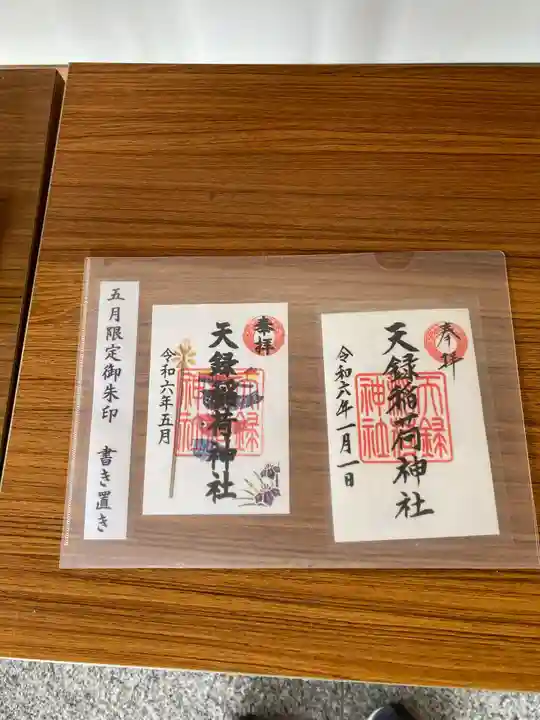 五月限定御朱印 書き置き
奉拝
天録稲荷神社
天録
神社
令和六年五月
奉拝
天録稲荷神社
天録
神社
令和六年一月一日